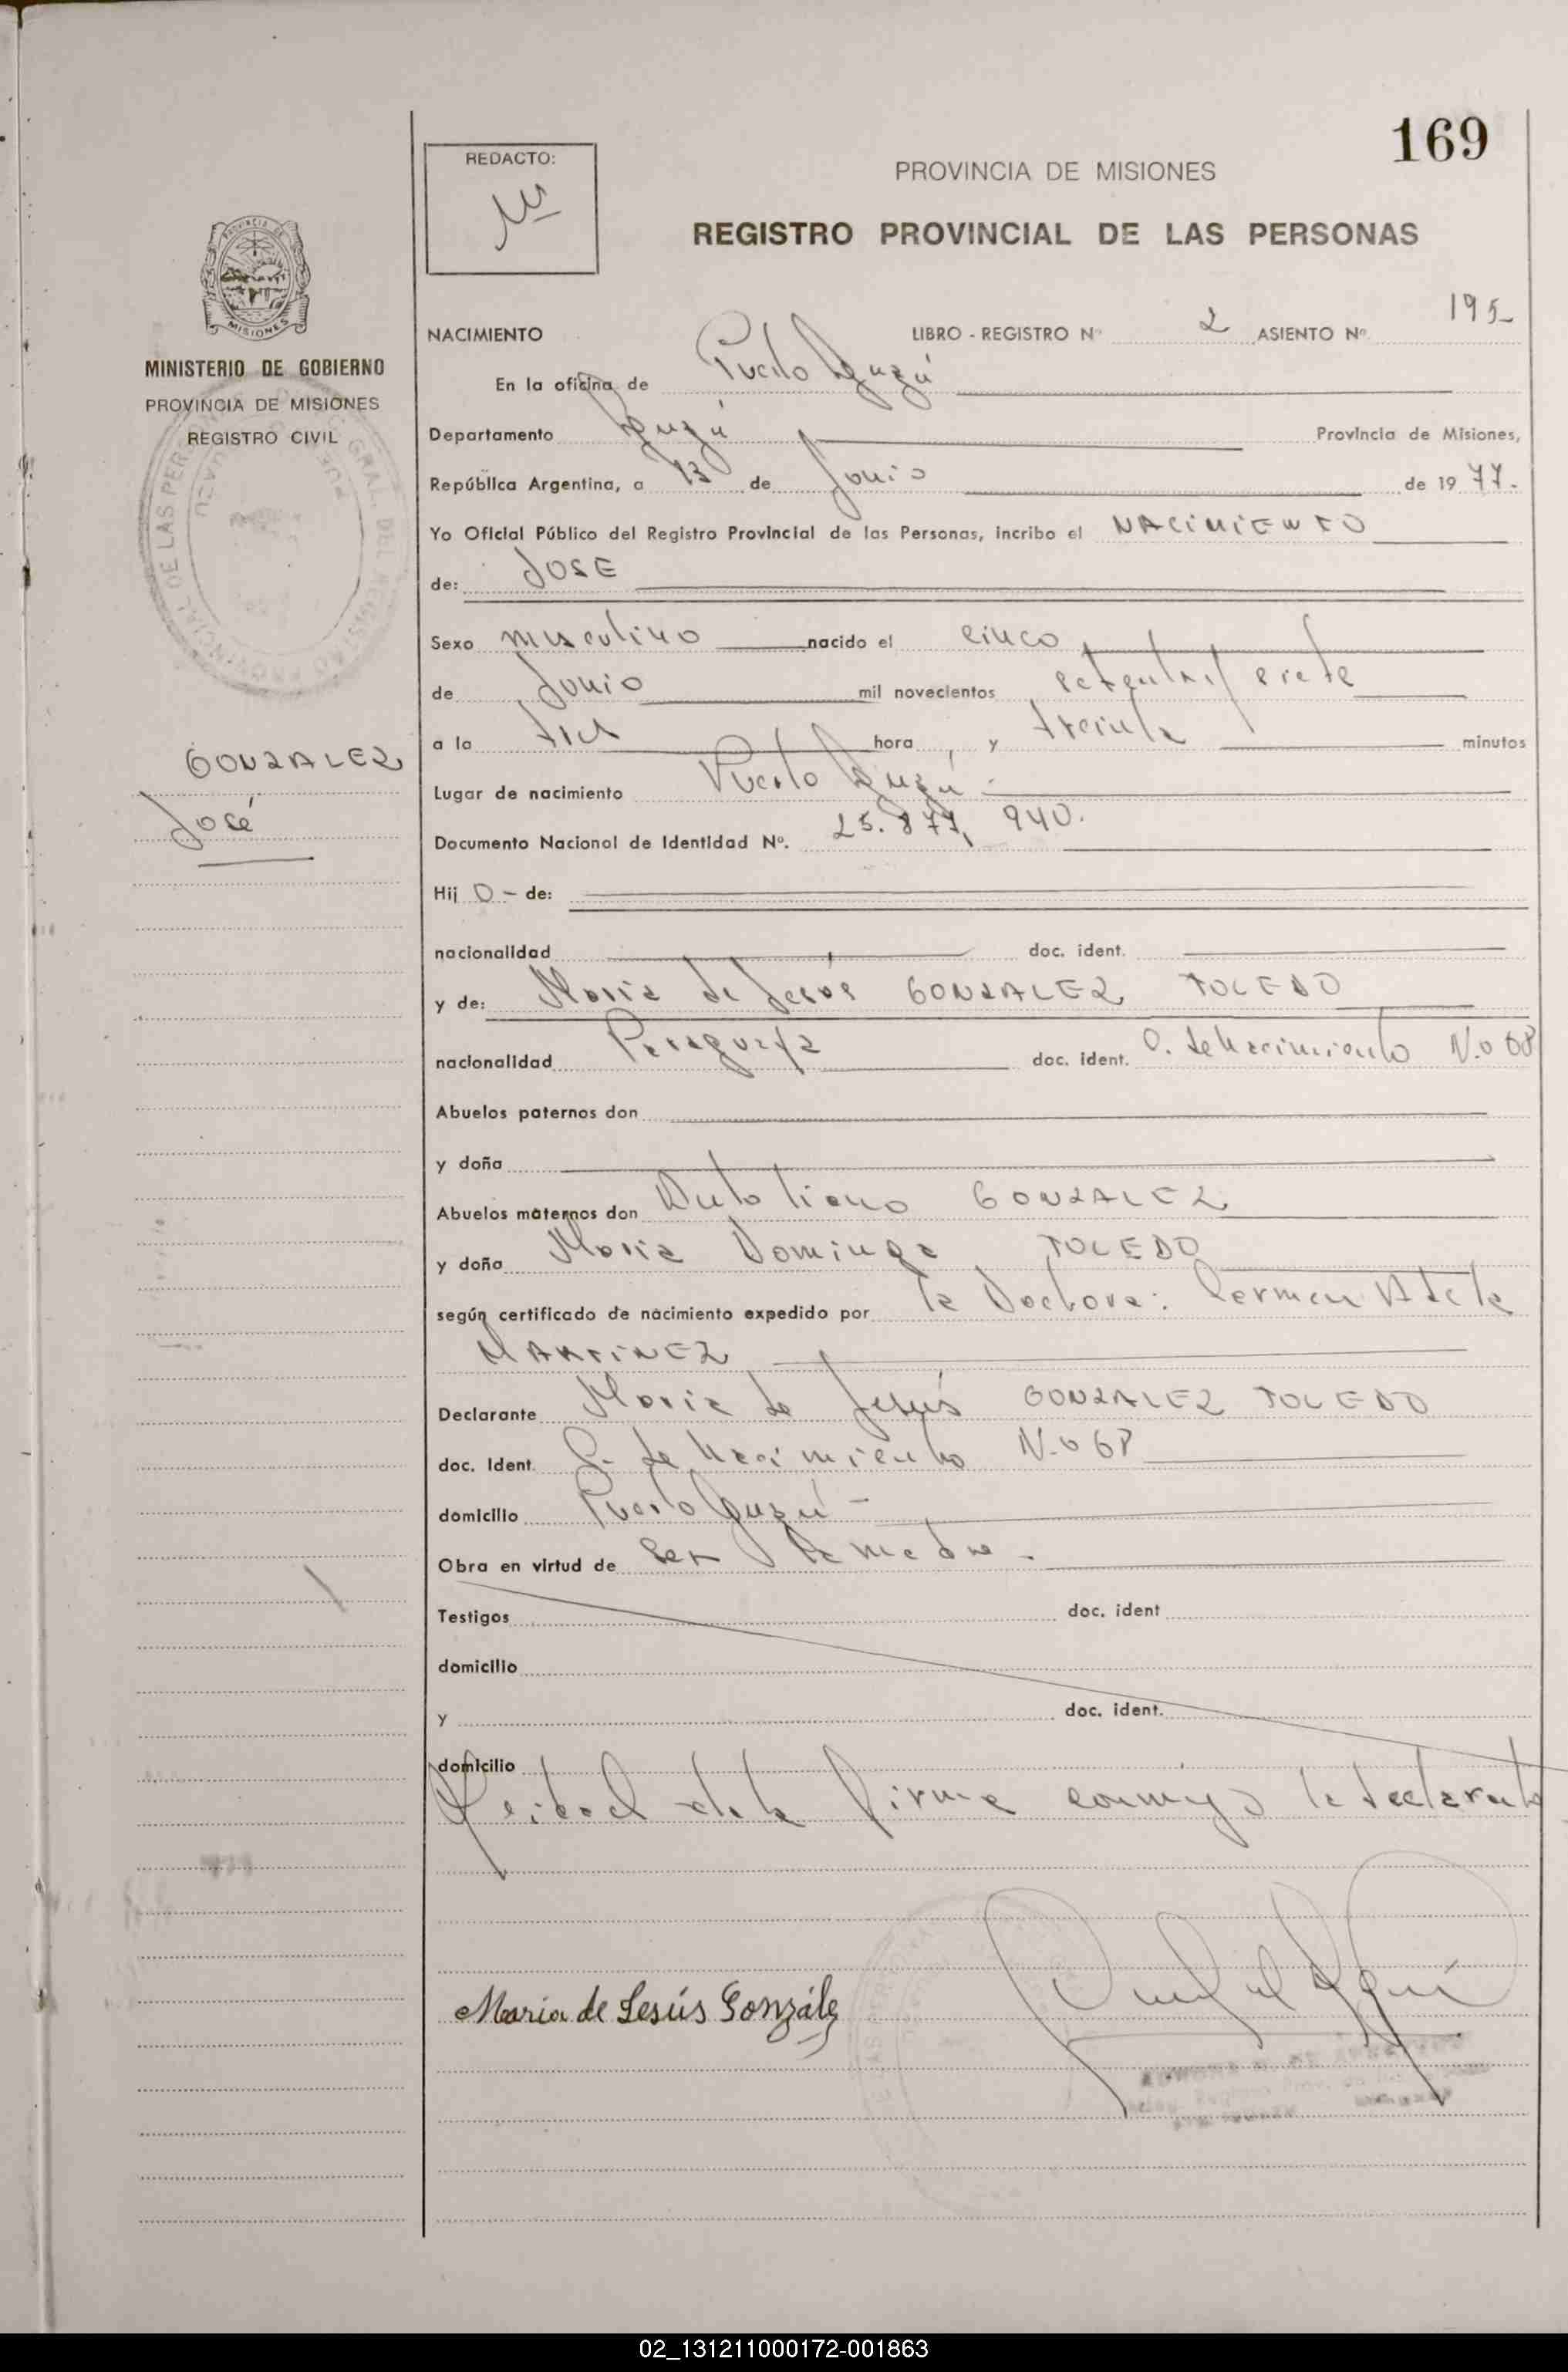 169
REDACTO:
PROVINCIA DE MISIONES
REGISTRO PROVINCIAL DE LAS PERSONAS
MISIONES
MINISTERIO DE GOBIERNO
PROVINCIA DE MISIONES
REGISTRO CIVIL
GONZALEZ
José
NACIMIENTO LIBRO - REGISTRO Nº 2 ASIENTO Nº 195
En la oficina de Puerto Iguazú
Departamento Iguazú Provincia de Misiones,
República Argentina, a 13 de Junio de 1977.
Yo Oficial Público del Registro Provincial de las Personas, incribo el NACIMIENTO
de: JOSE
Sexo masculino nacido el cinco
de Junio mil novecientos setenta y siete
a la tres hora, y treinta minutos
Lugar de nacimiento Puerto Iguazú -
Documento Nacional de Identidad Nº. 25.877.940.
Hij O - de:
nacionalidad doc. ident.
y de: María de Jesús GONZALEZ TOLEDO
nacionalidad Paraguaya doc. ident. C. de Nacimiento N.o 68
Abuelos paternos don
y doña
Abuelos maternos don GONZALEZ
y doña María Dominga TOLEDO
según certificado de nacimiento expedido por la Doctora: Carmen Adela
MARTINEZ
Declarante María de Jesús GONZALEZ TOLEDO
doc. Ident. C. de Nacimiento N.o 68
domicilio Puerto Iguazú -
Obra en virtud de ser la madre.
Testigos doc. ident
domicilio
y doc. ident.
domicilio
Leida el acta firma conmigo la declarante
María de Jesús González
02_131211000172-001863